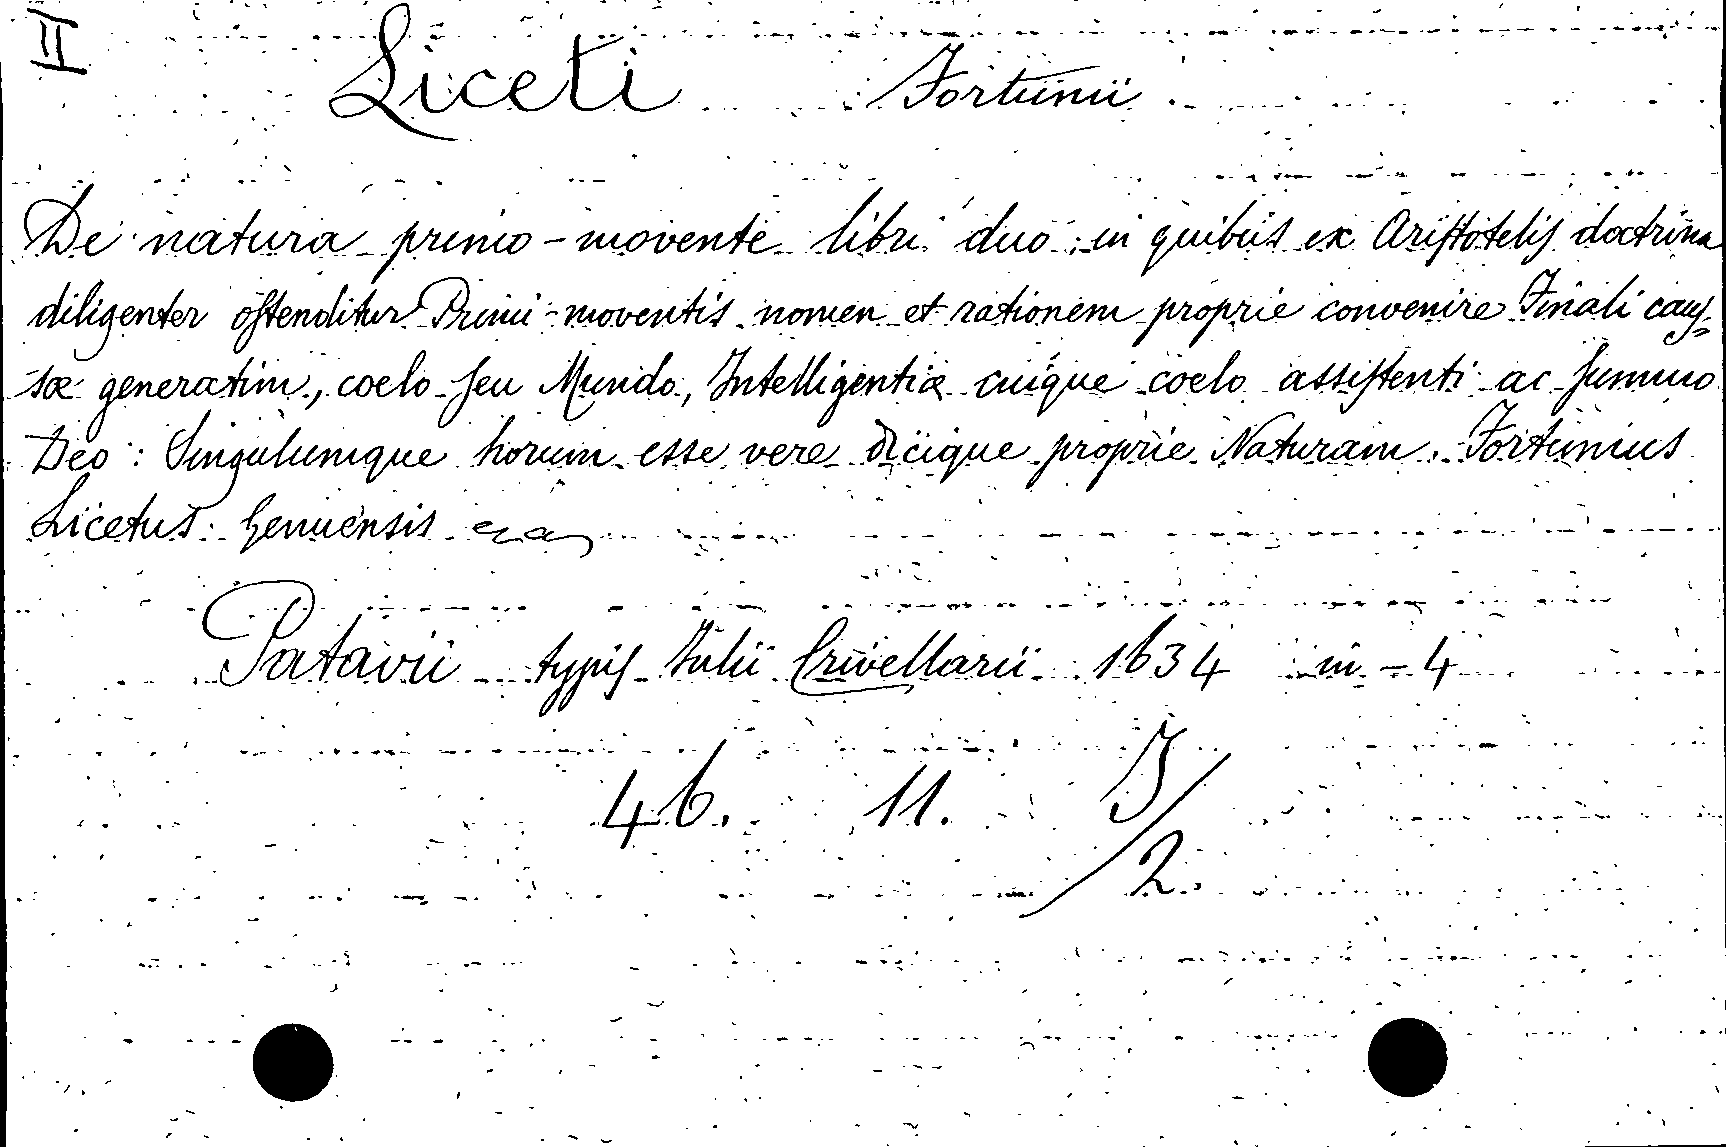 II
Liceti Fortunii
De natura primo-movente libri duo: in quibus ex Ariſtoteliſ doctrina
diligenter oſtenditur Primi-moventis nomen et rationem proprie convenire Finali cauſ=
sæ generatim, coelo ſeu Mundo, Intelligentiæ cuique coelo assiſtenti ac ſummo
Deo: Singulumque horum esse vere dicique proprie Naturam. Fortunius
Licetus Genuensis
Patavii typiſ Julii Crivellarii 1634 in-4
46. 11. I/2